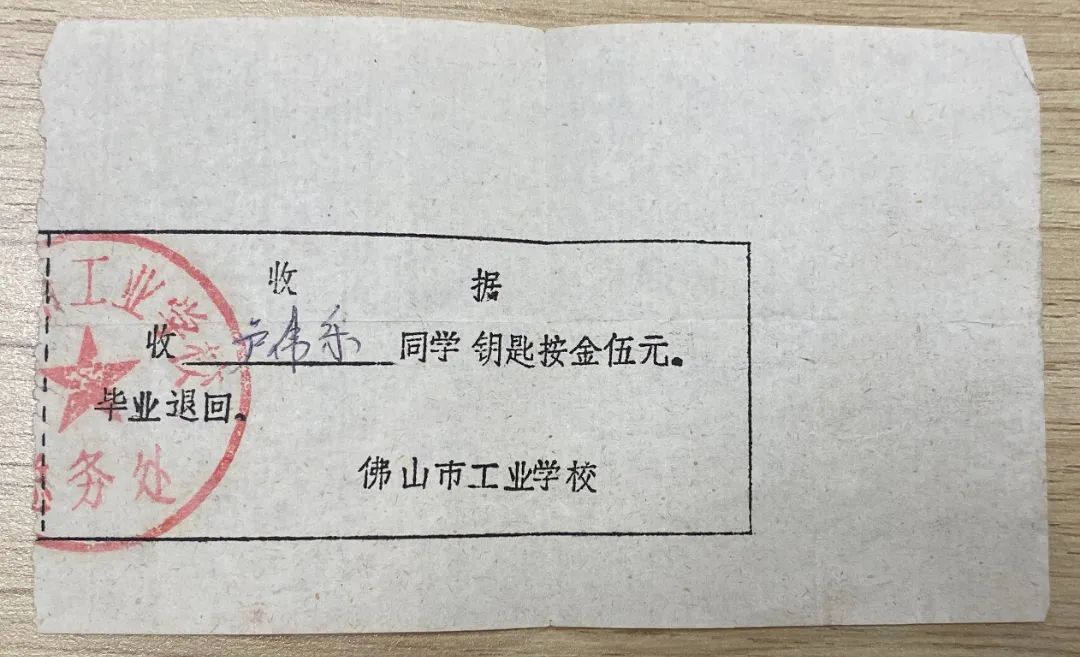 收 据
收 卢伟乐 同学 钥匙按金伍元。
毕业退回。
佛山市工业学校
工业学校
务处